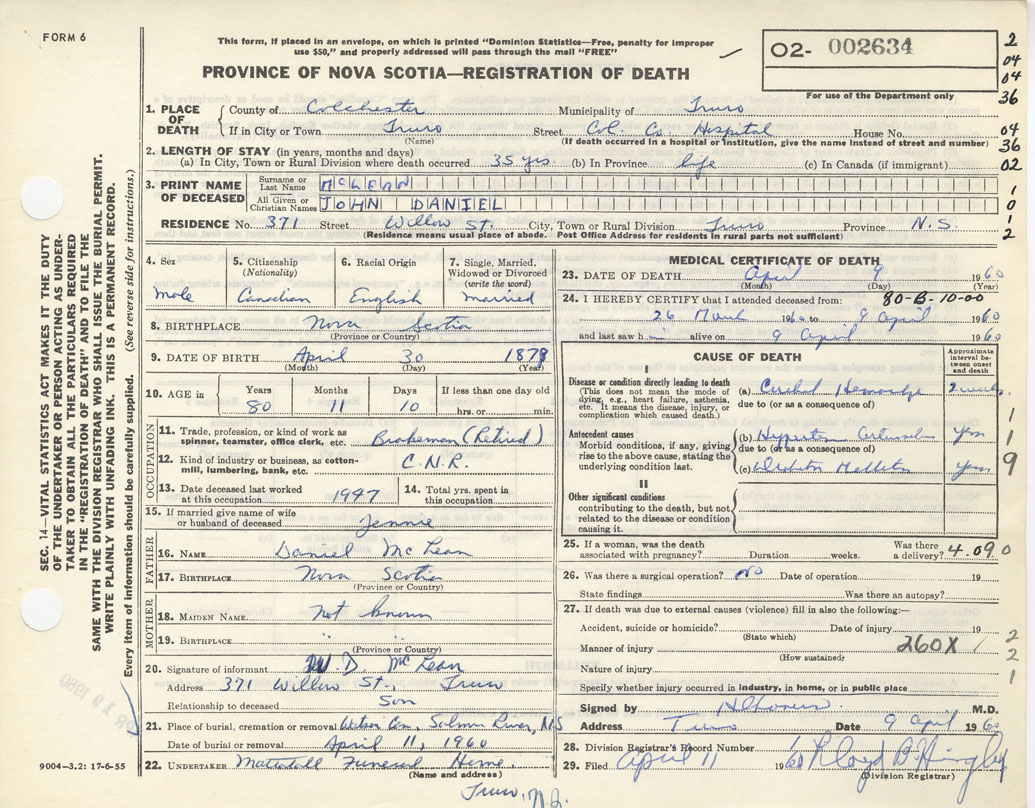 FORM 6
This form, if placed in an envelope, on which is printed "Dominion Statistics—Free, penalty for improper
use $50," and properly addressed will pass through the mail "FREE"
O2- 002634
For use of the Department only
PROVINCE OF NOVA SCOTIA—REGISTRATION OF DEATH
2
04
04
36
04
36
02
1
0
1
2
1. PLACE OF DEATH
County of Colchester Municipality of Truro
If in City or Town Truro Street Col. Co. Hospital House No.
(Name) (If death occurred in a hospital or institution, give the name instead of street and number)
2. LENGTH OF STAY (in years, months and days)
(a) In City, Town or Rural Division where death occurred 35 yrs (b) In Province life (c) In Canada (if immigrant)
3. PRINT NAME OF DECEASED
Surname or Last Name McLEAN
All Given or Christian Names JOHN DANIEL
RESIDENCE No. 371 Street Willow St. City, Town or Rural Division Truro Province N.S.
(Residence means usual place of abode. Post Office Address for residents in rural parts not sufficient)
4. Sex
Male
5. Citizenship
(Nationality)
Canadian
6. Racial Origin
English
7. Single, Married, Widowed or Divorced
(write the word)
married
8. BIRTHPLACE Nova Scotia
(Province or Country)
9. DATE OF BIRTH April 30 1879
(Month) (Day) (Year)
10. AGE in
Years Months Days If less than one day old
80 11 10 hrs. or min.
OCCUPATION
11. Trade, profession, or kind of work as
spinner, teamster, office clerk, etc. Brakeman (Retired)
12. Kind of industry or business, as cotton-
mill, lumbering, bank, etc. C.N.R.
13. Date deceased last worked
at this occupation. 1947
14. Total yrs. spent in
this occupation.
15. If married give name of wife
or husband of deceased Jennie
FATHER
16. NAME Daniel McLean
17. BIRTHPLACE Nova Scotia
(Province or Country)
MOTHER
18. MAIDEN NAME Not known
19. BIRTHPLACE " "
(Province or Country)
20. Signature of informant W. D. McLean
Address 371 Willow St., Truro
Relationship to deceased Son
21. Place of burial, cremation or removal Cem, Salmon River, NS
Date of burial or removal April 11, 1960
22. UNDERTAKER Mattatall Funeral Home
(Name and address)
Truro, N.S.
MEDICAL CERTIFICATE OF DEATH
23. DATE OF DEATH April 9 1960
(Month) (Day) (Year)
24. I HEREBY CERTIFY that I attended deceased from: 80-B-10-00
26 March 1960 to 9 April 1960
and last saw him alive on 9 April 1960
CAUSE OF DEATH
Approximate interval between onset and death
I
Disease or condition directly leading to death
(This does not mean the mode of
dying, e.g., heart failure, asthenia,
etc. It means the disease, injury, or
complication which caused death.)
(a) Cerebral Hemorrhage 2 weeks
due to (or as a consequence of)
Antecedent causes
Morbid conditions, if any, giving
rise to the above cause, stating the
underlying condition last.
(b) Yrs
due to (or as a consequence of)
(c) Mellitus years
II
Other significant conditions
contributing to the death, but not
related to the disease or condition
causing it.
1
1
9
25. If a woman, was the death
associated with pregnancy? Duration weeks. Was there
a delivery? 4.090
26. Was there a surgical operation? no Date of operation 19
State findings Was there an autopsy?
27. If death was due to external causes (violence) fill in also the following:—
Accident, suicide or homicide? Date of injury 19
(State which)
Manner of injury 260X
(How sustained)
Nature of injury
2
2
1
Specify whether injury occurred in industry, in home, or in public place
Signed by M.D.
Address Truro Date 9 April 1960
28. Division Registrar's Record Number
29. Filed April 11 1960
(Division Registrar)
SEC. 14—VITAL STATISTICS ACT MAKES IT THE DUTY
OF THE UNDERTAKER OR PERSON ACTING AS UNDER-
TAKER TO OBTAIN ALL THE PARTICULARS REQUIRED
IN THE "REGISTRATION OF DEATH" AND TO FILE THE
SAME WITH THE DIVISION REGISTRAR WHO SHALL ISSUE THE BURIAL PERMIT.
WRITE PLAINLY WITH UNFADING INK. THIS IS A PERMANENT RECORD.
Every item of information should be carefully supplied. (See reverse side for instructions.)
9004-3.2: 17-6-55